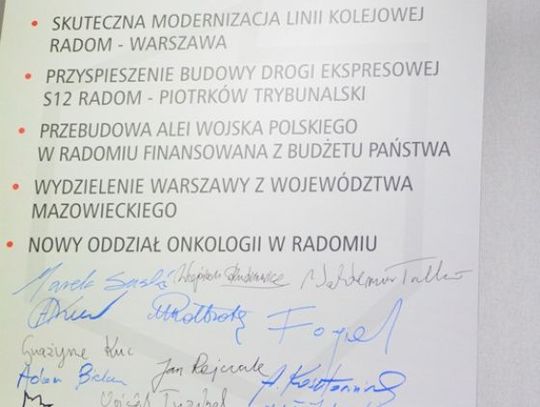 • SKUTECZNA MODERNIZACJA LINII KOLEJOWEJ
RADOM - WARSZAWA
• PRZYSPIESZENIE BUDOWY DROGI EKSPRESOWEJ
S12 RADOM - PIOTRKÓW TRYBUNALSKI
• PRZEBUDOWA ALEI WOJSKA POLSKIEGO
W RADOMIU FINANSOWANA Z BUDŻETU PAŃSTWA
• WYDZIELENIE WARSZAWY Z WOJEWÓDZTWA
MAZOWIECKIEGO
• NOWY ODDZIAŁ ONKOLOGII W RADOMIU
Marek Suski Wojciech
Fogel
Grażyna Kuc Jan Rejczak
Adam Bielan